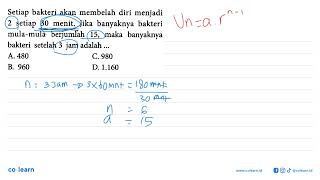 Setiap bakteri akan membelah diri menjadi
2 setiap 30 menit. Jika banyaknya bakteri
mula-mula berjumlah 15, maka banyaknya
bakteri setelah 3 jam adalah ...
A. 480 C. 980
B. 960 D. 1.160
Un = a r^n-1
n : 3 Jam → 3 x 60 mnt = 180 mnt
30 mnt
n = 6
a = 15
co learn
www.colearn.id
@colearn.id